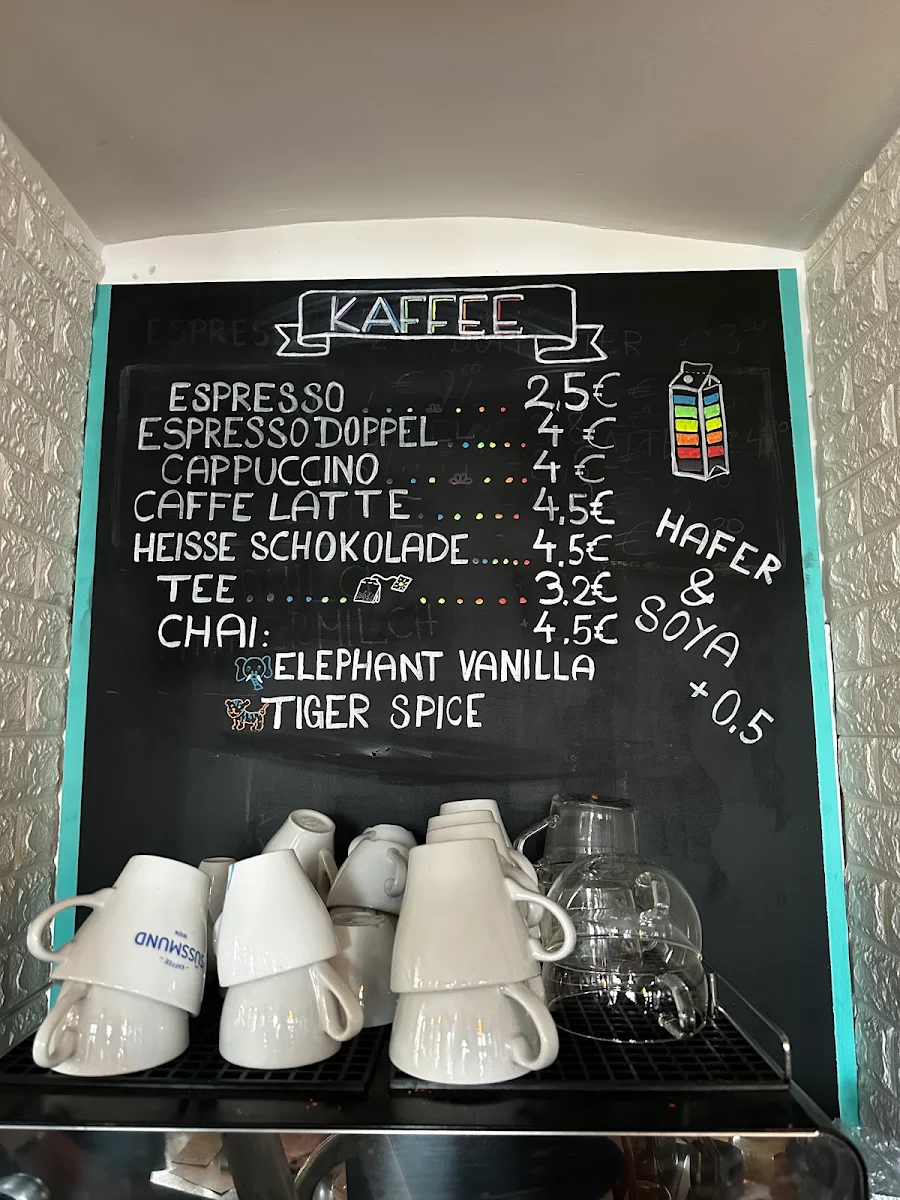 KAFFEE
ESPRESSO 2,5€
ESPRESSO DOPPEL 4 €
CAPPUCCINO 4 €
CAFFE LATTE 4,5€
HEISSE SCHOKOLADE 4,5€
TEE 3,2€
CHAI: 4,5€
ELEPHANT VANILLA
TIGER SPICE
HAFER
&
SOYA
+0,5
- KAFFEE -
SÜSSMUND
WIEN